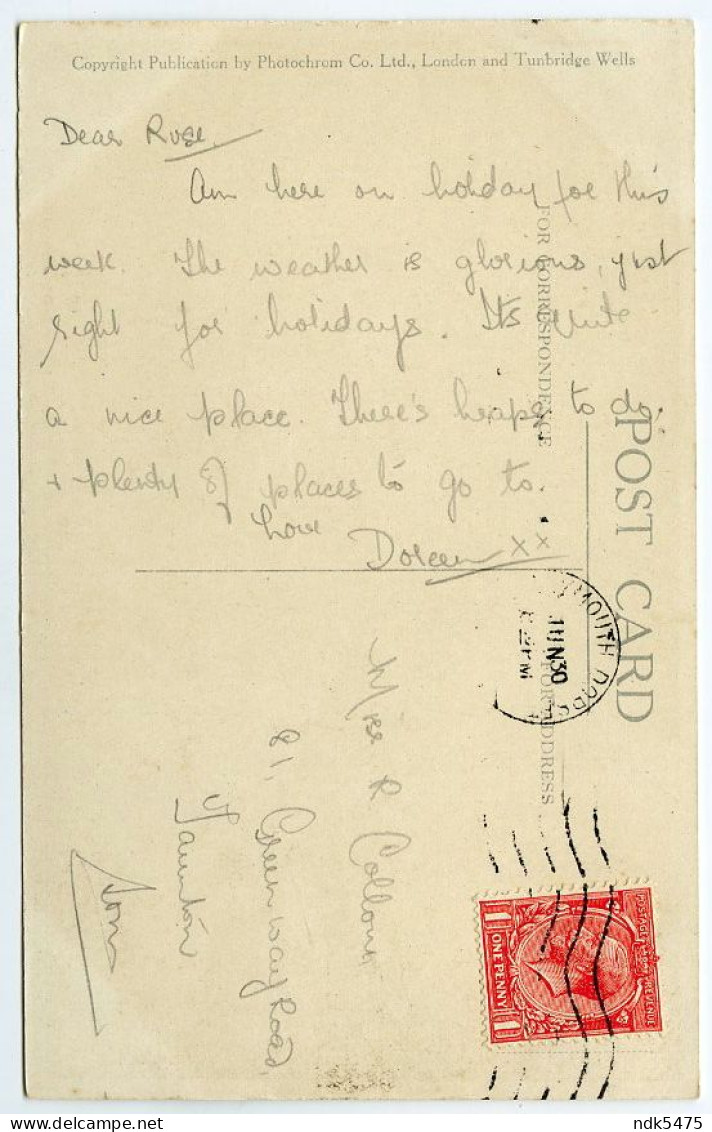 Copyright Publication by Photochrom Co. Ltd., London and Tunbridge Wells
Dear Rose.
Am here on holiday for this
week. The weather is glorious, just
right for holidays. Its quite
a nice place. There's heaps to do.
+ plenty of places to go to.
Love
Doreen xx
POST CARD
FOR CORRESPONDENCE
FOR ADDRESS
MOUTH DORS
JUN 30
PM
Miss R
81, Greenway Road,
Taunton
Som
POSTAGE REVENUE
1 ONE PENNY 1
ndk5475